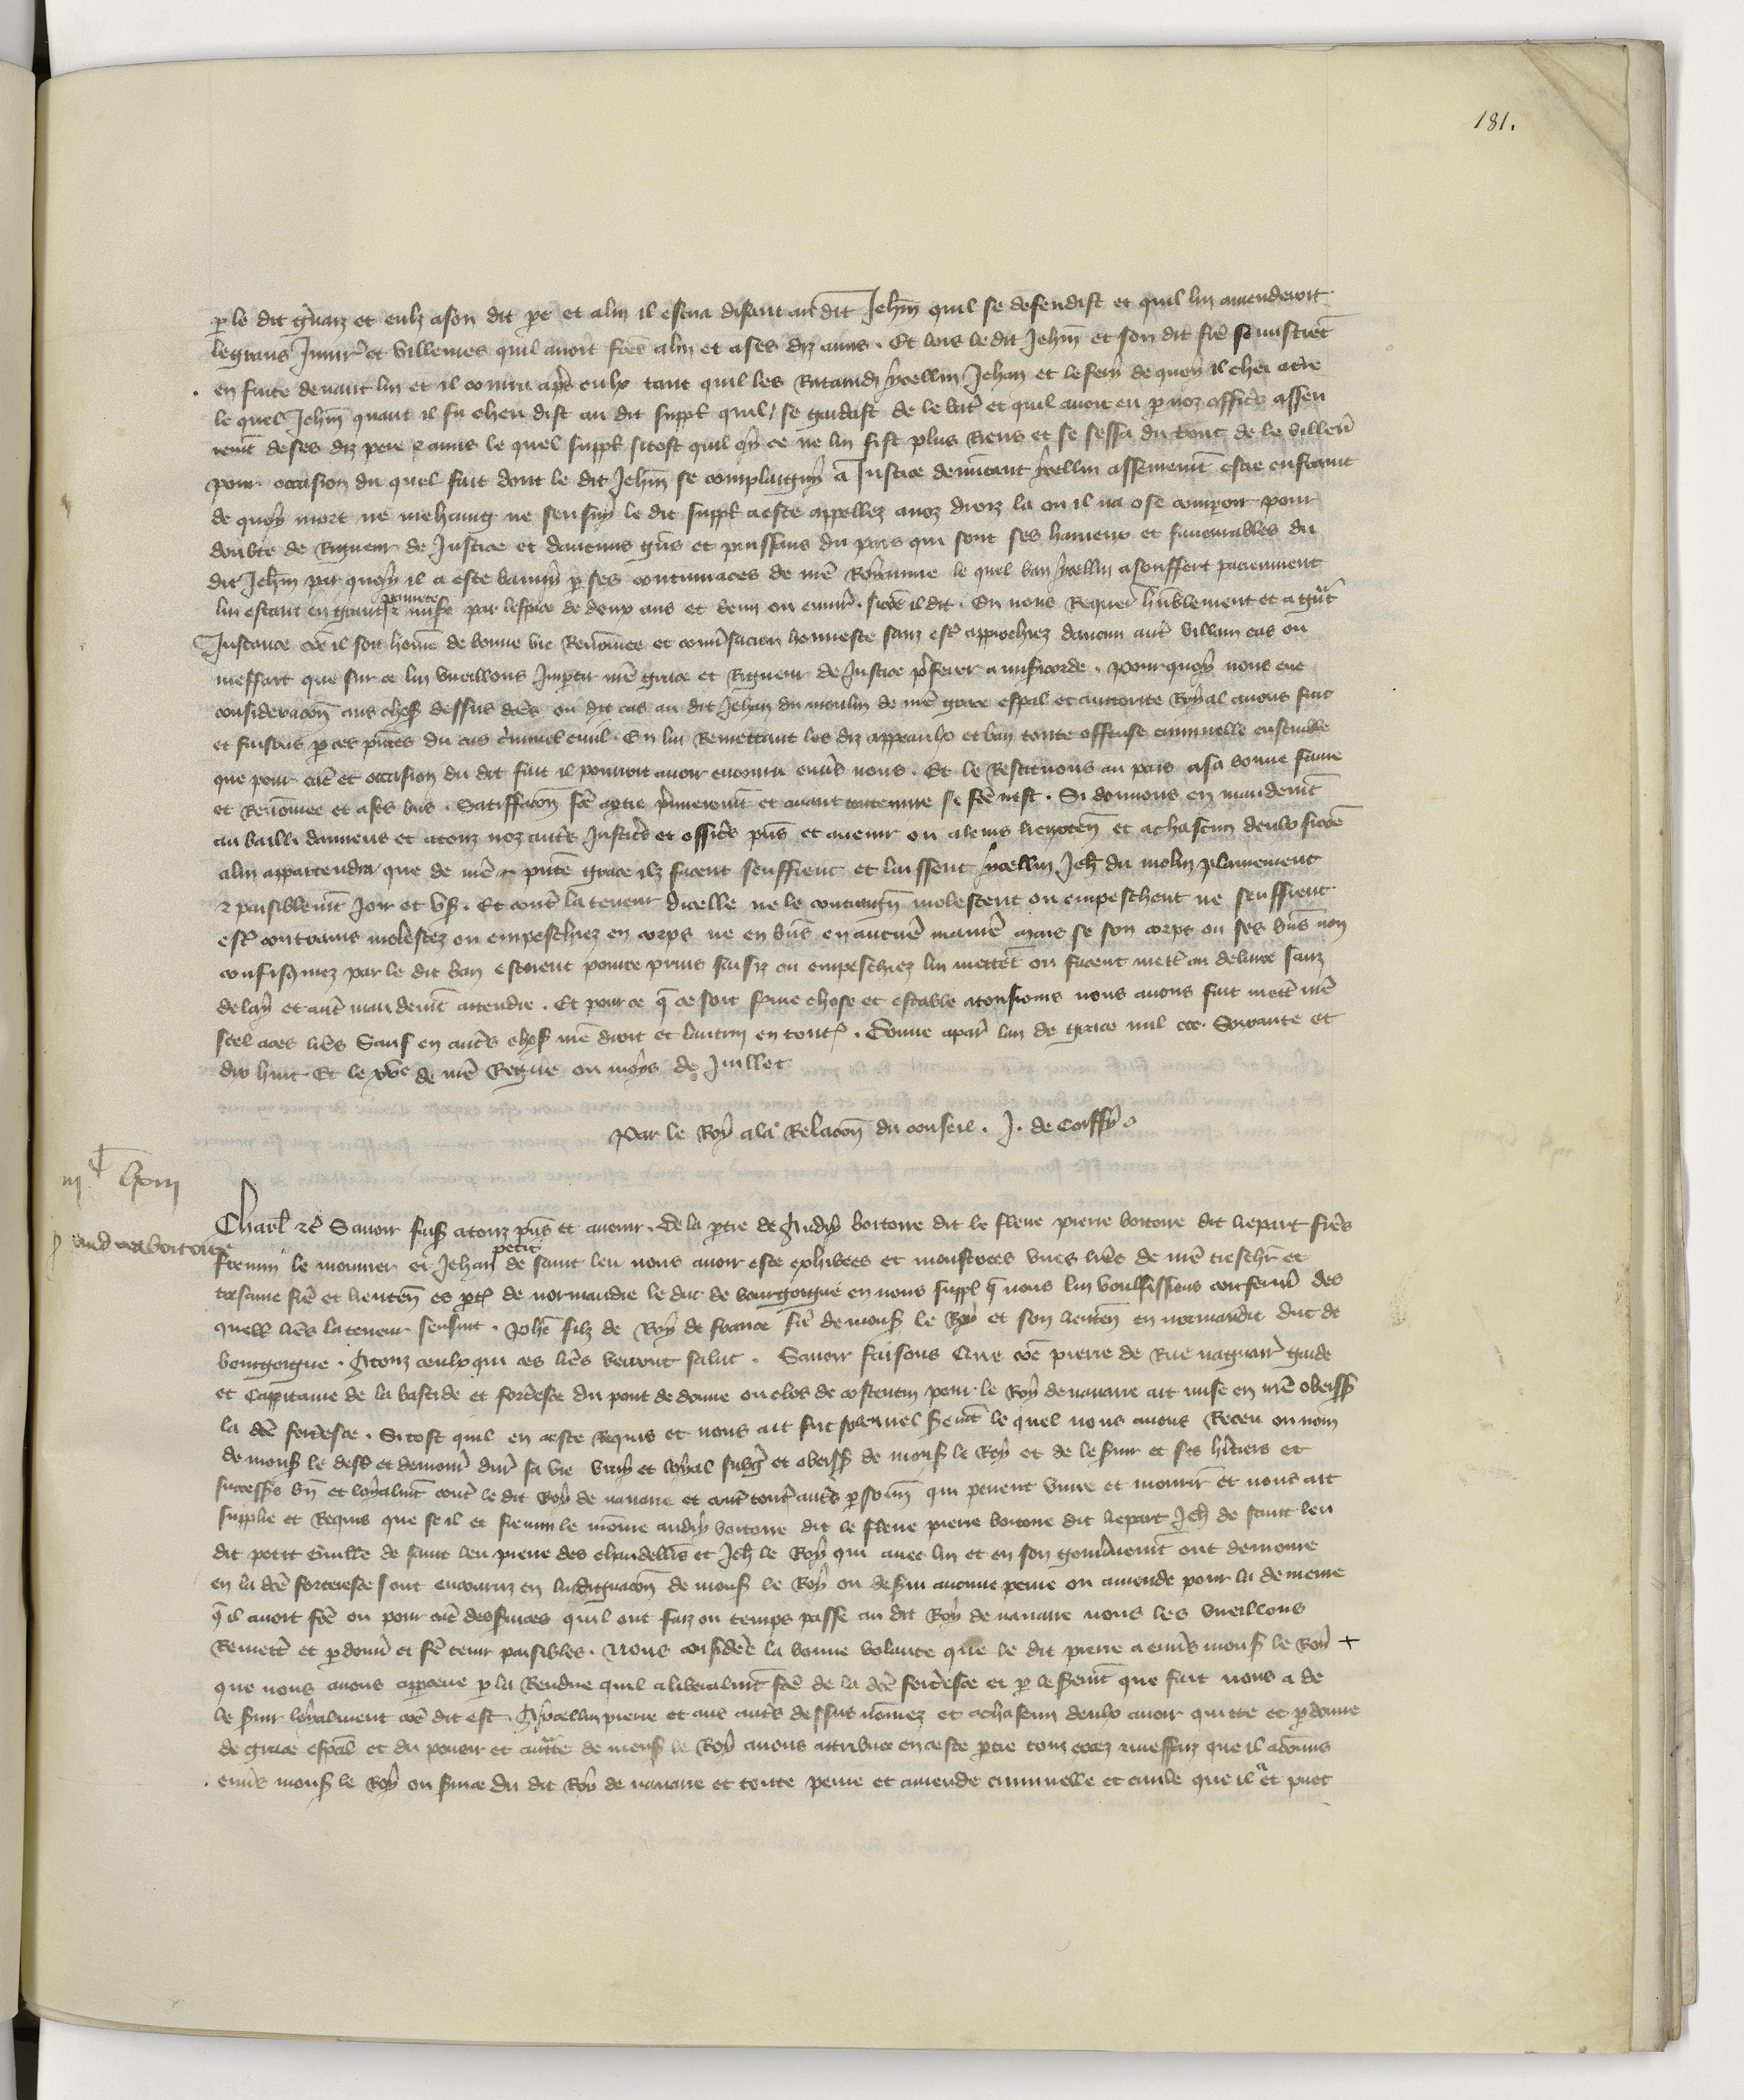 181.
p le dit gñarz et eulz a son dit pe et a luy il escria disant au dit Jehñ quil se defendist et quil luy amenderoit
le grans Injur et villenies quil avoit fces a luy et a ses diz amis . Et lors le dit Jehñ et son dit fre se mistret
en fuite devant luy et il couru aps eulx tant quil les Rataindy ycelluy Jehan et le fery de quoy il chei a tre
le quel Jehñ quant il fu cheu dist au dit suppl quil se gardast de le batr et quil avoit eu p noz offics asseu
remt de ses diz pere et amis le quel suppl sitost quil oy ce ne luy fist plus Riens et se cessa du tout de le villen
pour occasion du quel fait dont le dit Jehñ se complaigny a Justice denutant ycelluy asseuremt estre enfraint
de quoy mort ne mehaing ne sensuy le dit suppl a este appellez a noz droiz la ou il na ose comparoir pour
doubte de Rigueur de Justice et daucuns gns et puissans du pais qui sont ses haineux et favourables du
dit Jehñ par quoy il a este banniy p ses contumaces de nre Royaume le quel ban ycelluy a souffert paciemment
luy estant en grant povrete et mise par lespace de deux ans et demi ou envir . sicoe il dit . En nous Requer humblement et a grat
Instance coe il soit home de bonne vie Renomee et conversacion honneste sanz estr approchiez daucun autr villain cas ou
meffait que sur ce luy vueillons Impartir nre grace et Rigueur de Justice pferer a misicorde . Pourquoy nous eue
consideracon aus choses dessus dces ou dit cas au dit Jehan du moulin de nre grace espal et auctorite Royal avons fait
et faisons p ces pntes du cas criminel civil . En luy Remettant les diz appeaulx et ban toute offense criminelle ensemble
que pour cause et occasion du dit fait il pourroit avoir encouru envs nous . Et le Restituons au pais a sa bonne fame
et Renomee et a ses bns . Satisffacon fce a ptie premieremt et avant toute euvre se fce nest . Si donnons en mandemt
au bailli damiens et a touz noz autrs Justics et offics pns et avenir ou a leurs lieuxten et a chascun deulx sicoe
a luy appartendra que de nre pnte grace ilz facent seuffrent et laissent ycelluy Jeh du molin plainement
et paisiblemt Joir et user . Et contr la teneur dicelle ne le contraign molestent ou empeschent ne seuffrent
estr contrains molestez ou empeschiez en corps ne en bns en aucune maniere mais se son corps ou ses bns non
confisquez par le dit ban estoient pource prins saisiz ou empeschiez luy mettet ou facent mettr au delivre sanz
delay et autr mandemt attendre . Et pour ce q ce soit ferme chose et estable a tousjours nous avons fait mettr nre
scel a ces lres Sauf en autrs choses nre droit et lautruy en toutes . Donne a paris lan de grace mil ccc . Soixante et
dix huit Et le xve de nre Regne ou moys de Juillet
Par le Roy a la Relacon du conseil . J . de Coiffy
Charl etc Savoir faisons a touz pns et avenir . De la ptie de Andry boitoire dit le fleue pierre boitoire dit liepart freres
firmin le monnier et Jehan petit de saint leu nous avoir este exhibees et monstrees unes lres de nre treschr et
tresame fre et lieuten es pties de normandie le duc de bourgoigne en nous suppl q nous luy voulsissions confermr des
quelles lres la teneur sensuit . Phe filz de Roy de france fre de mons le Roy et son lieuten en normandie duc de
bourgoigne . A touz ceulx qui ces lres verront salut . Savoir faisons Que coe pierre de Rue naguair garde
et Cappitaine de la bastide et forteresce du pont de douve ou clos de costentin pour le Roy de navarre ait mise en nre obeiss
la dce forteresce . Sitost quil en a este Requis et nous ait fait solennel Sermt le quel nous avons Receu ou nom
de mons le dess et demourr durr sa vie vray et loyal subgr et obeiss de mons le Roy et de le servir et ses heritiers et
successrs bn et loyalmt contr le dit Roy de navarre et contr toutr autrs psonn qui pevent vivre et mourir et nous ait
supplie et Requis que se il et firmin le monnie andry boitoire dit le fleue pierre boitoire dit liepart Jeh de saint leu
dit petit Guille de saint leu pierre des chandelliers et Jeh le Roy qui avec luy et en son gouvernemt ont demoure
en la dce forteresce sont encouruz en Indignacon de mons le Roy ou de luy aucune peine ou amende pour la demeure
q il avoit fce ou pour cause des services quil ont faiz ou temps passe au dit Roy de navarre nous les vueillons
Remettr et pdonnr et fe tenir paisibles . Nous considere la bonne volante que le dit pierre a envs mons le Roy +
que nous avons apperceue p la Rendue quil a liberalmt fce de la dce forteresce et p le sermt que fait nous a de
le servir loyalment coe dit est . A ycelluy pierre et aus autrs dessus nomez et a chascun deulx avoir quitte et pdonne
de grace espal et du povoir et autte de mons le Roy avons attribue en ceste ptie touz excez et meffaiz que il a comis
envrs mons le Roy ou service du dit Roy de navarre et toute peine et amende criminelle et civile que il a et puet